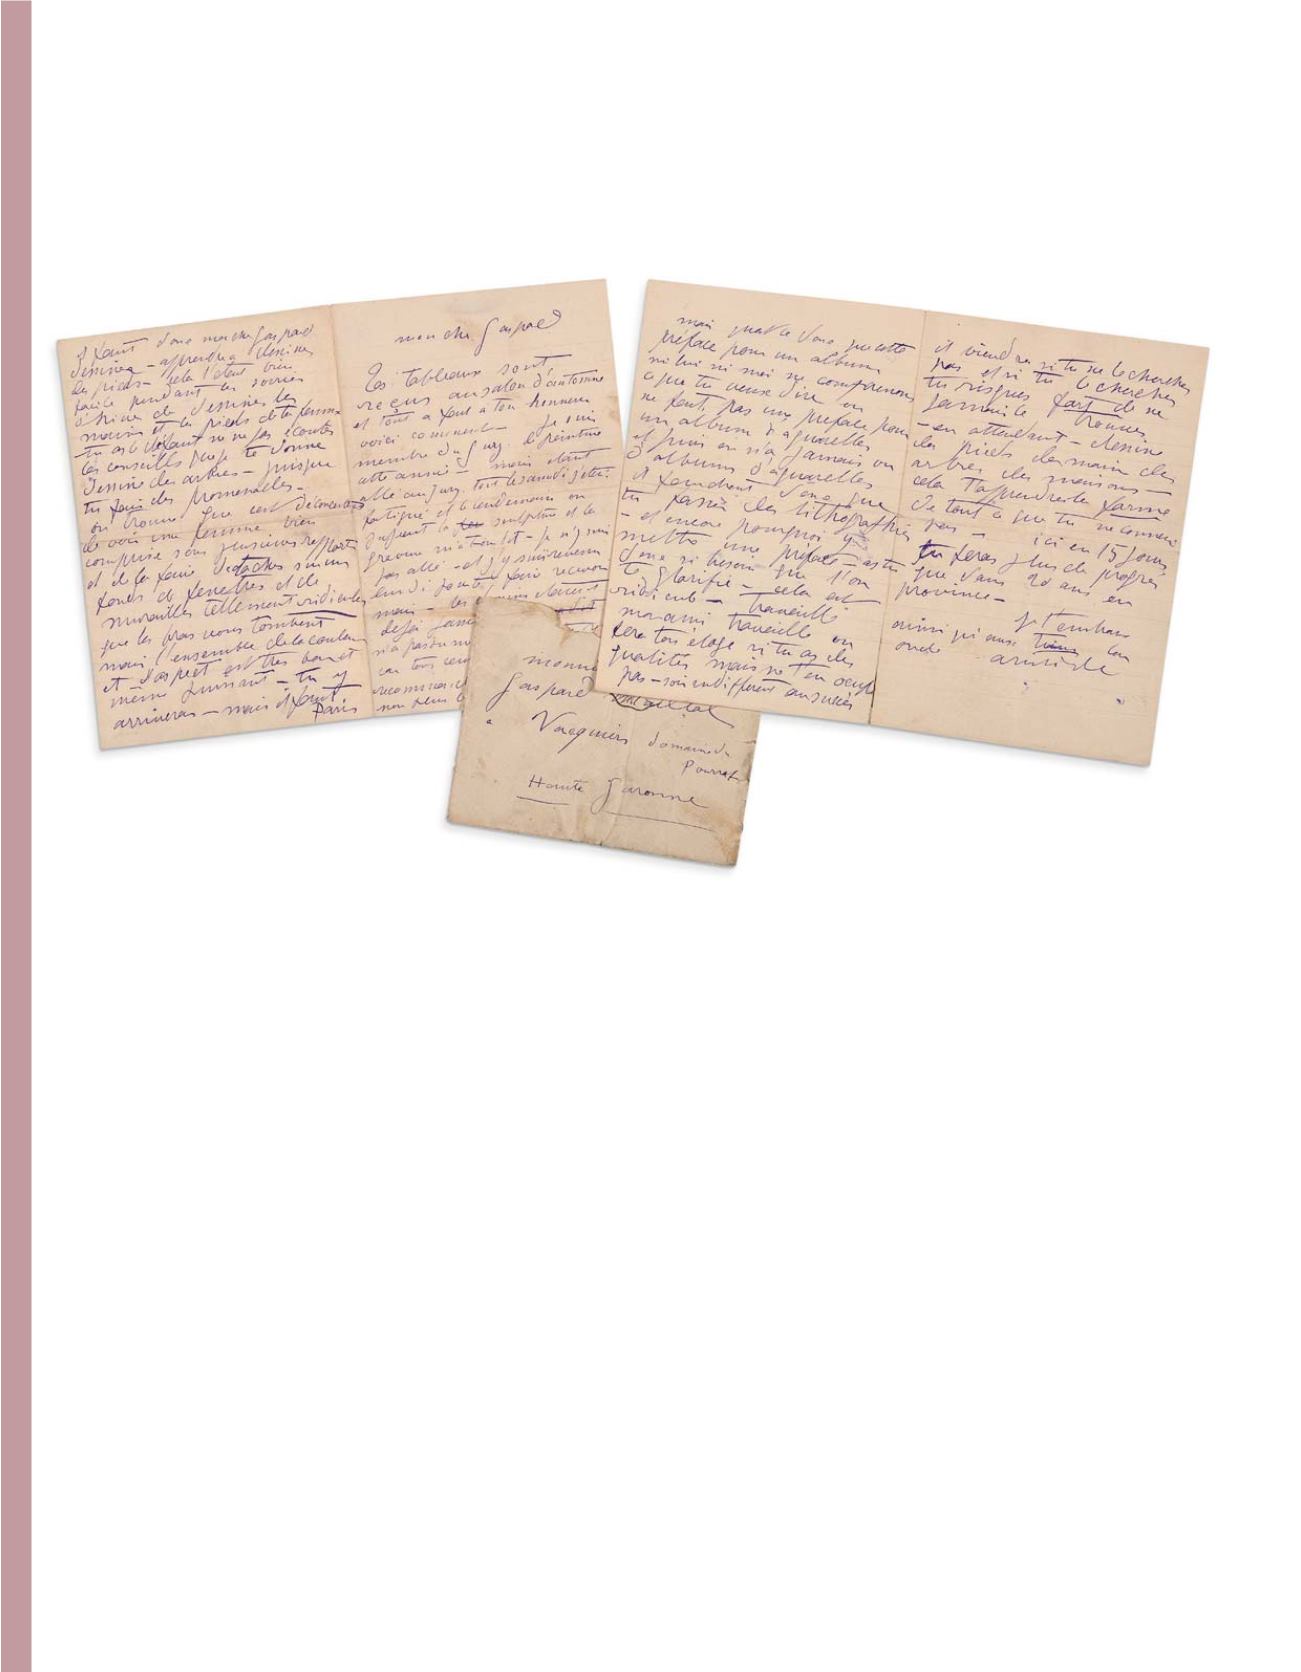 mon cher Gaspard
Tes tableaux sont
reçus au salon d'automne
et tout a fait a ton honneur
voici comment — Je suis
membre du jury de peinture
cette année — mais etant
allé au jury tout le samedi j'etai
fatigué et le lendemain on
jugeait la sculpture et la
gravure
pas allé — et j'y suis revenu
lundi
mais — les
deja
n'a pas
car tous
reconnai
non plus
il faut donc mon cher Gaspard
dessiner — apprendre a dessiner
les pieds — cela t'etait bien
facile pendant les soirées
d'hiver de dessiner les
mains et les pieds de ta femme
tu es
les conseils que je te donne
dessine des arbres — puisque
tu fais des promenades —
on trouve que c'est déconcertant
de voir une femme bien
comprise sous plusieurs rapports
et de la faire detacher sur un
fond de fenetres et de
murailles tellement ridicules
que les bras vous tombent
mais l'ensemble de la couleur
et l'aspect est très bon et
même puissant — tu y
arriveras — mais il faut
Paris
mais qu'est ce donc que cette
préface pour un album
ni lui ni moi ne comprenons
ce que tu veux dire on
ne fait pas une preface pour
un album d'aquarelles
et puis on n'a jamais vu
d'albums d'aquarelles
il faudrait donc que
tu fasses des lithographies
— et encore pourquoi y
mettre une préface — as tu
donc si besoin que l'on
te glorifie — cela est
ridicule — travaille
mon ami travaille on
fera ton éloge si tu as des
qualités mais ne t'en occupe
pas — sois indifferent au succès
il viendra si tu ne le cherches
pas et si tu le cherches
tu risques fort de ne
jamais le trouver
— en attendant — dessine
des pieds des mains des
arbres des maisons —
cela t'apprendra la forme
de tout ce que tu ne connais
pas — ici en 15 jours
tu feras plus de progrès
que dans 20 ans en
province —
Je t'embrasse
ainsi qu'aussi ton
oncle aristide
Gaspard Maillol
a Vacquiers domaine de
Haute Garonne